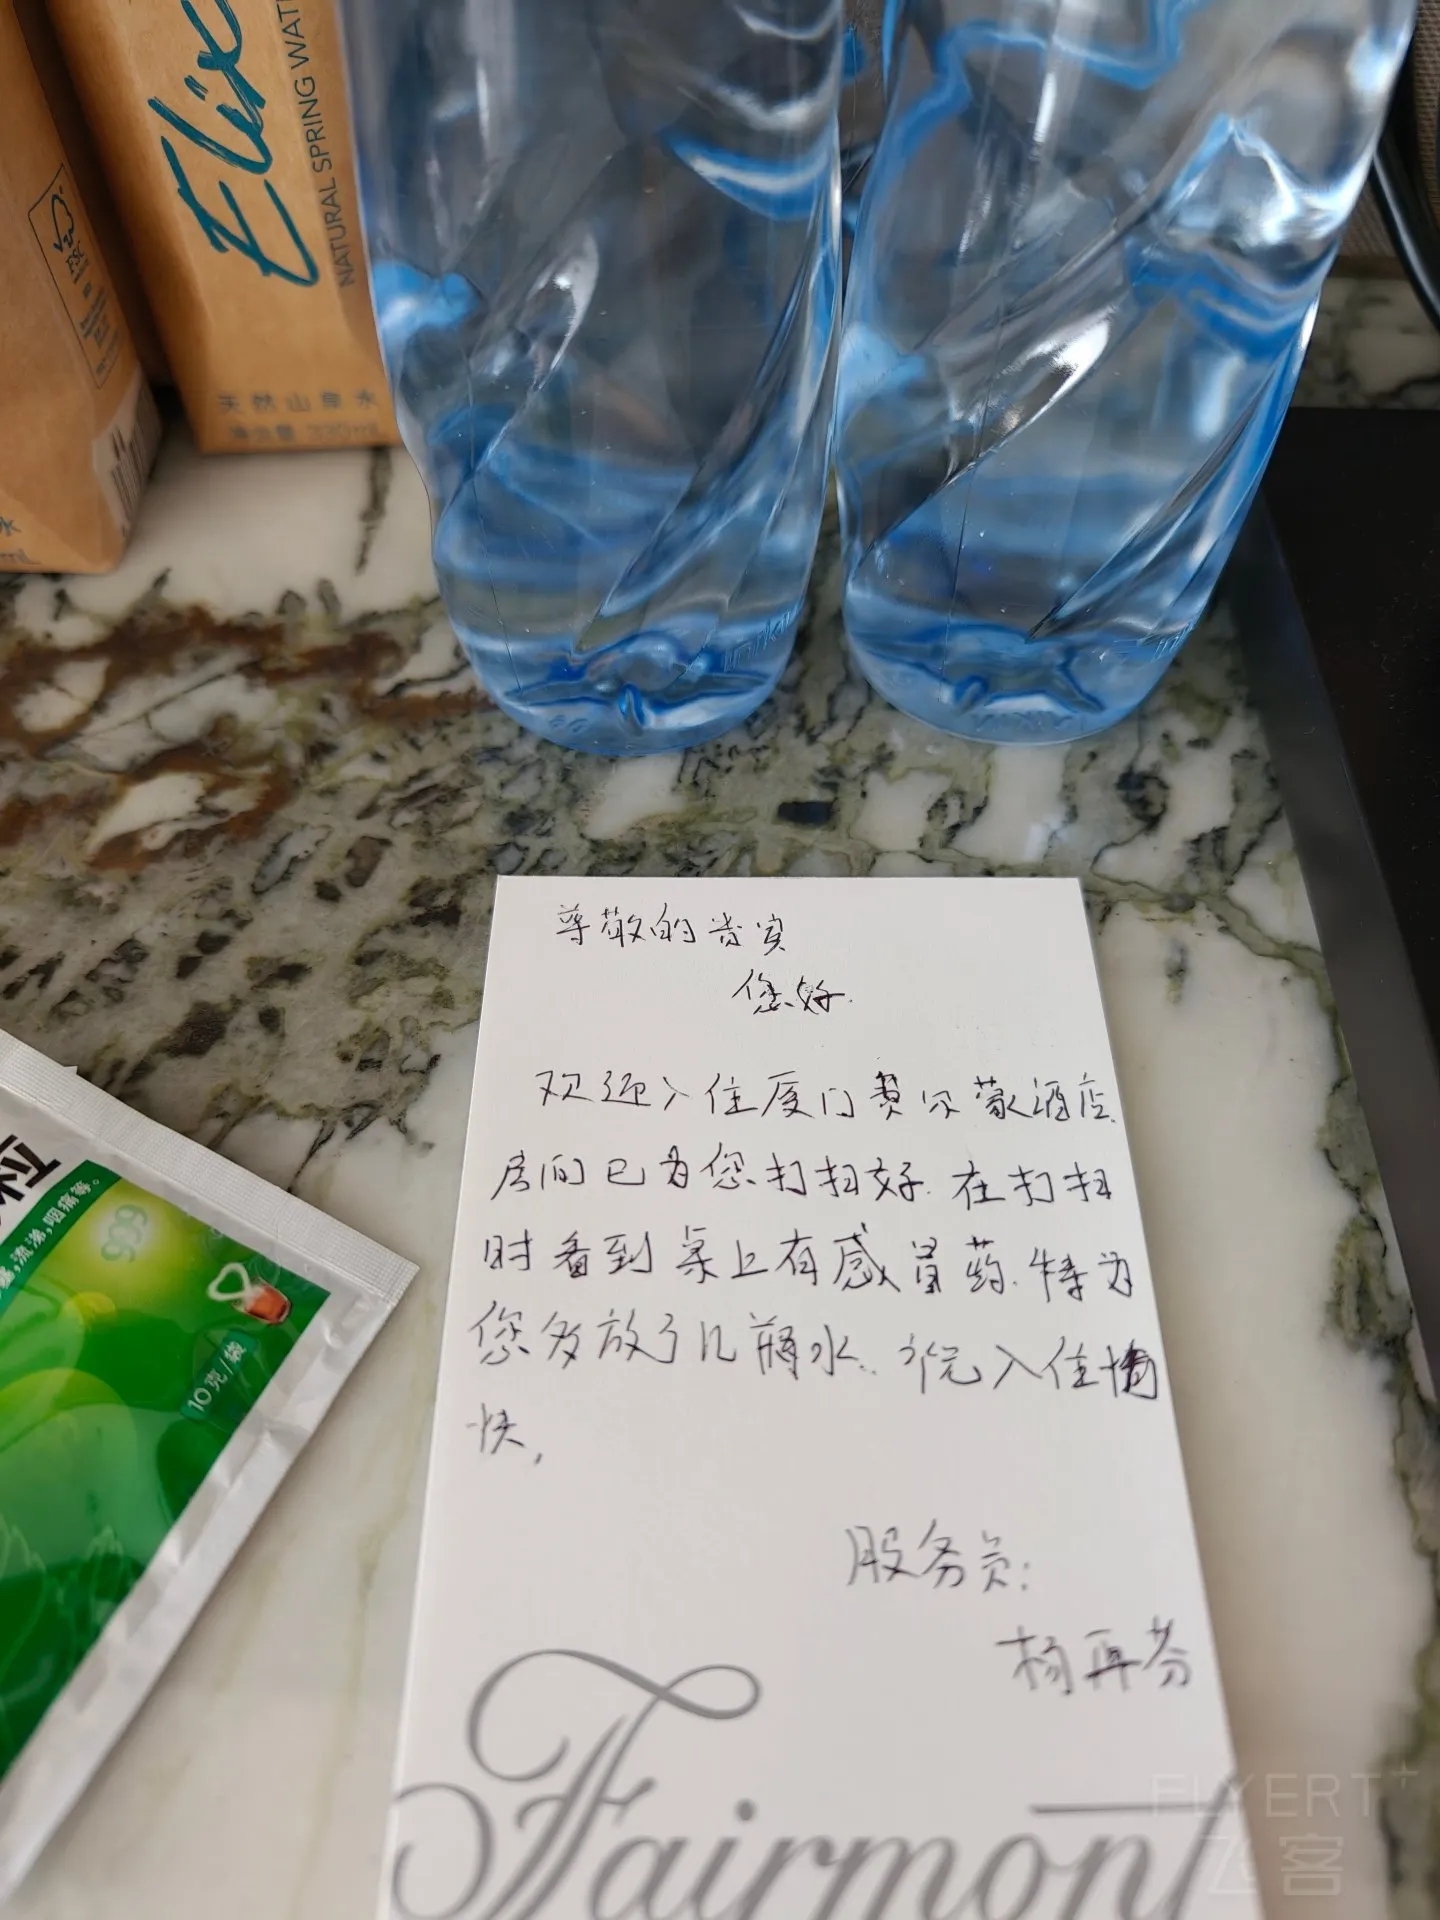 Elix
NATURAL SPRING WAT
FSC
天然山泉水
净含量 330mL
水
mL
尊敬的贵宾
您好.
欢迎入住厦门费尔蒙酒店.
房间已为您打扫好.在打扫
时看到桌上有感冒药.特为
您多放了几瓶水..祝入住愉
快,
服务员:
杨再芬
Fairmont
粒
流涕,咽痛等。
999
10克/袋
FLYERT+
飞客